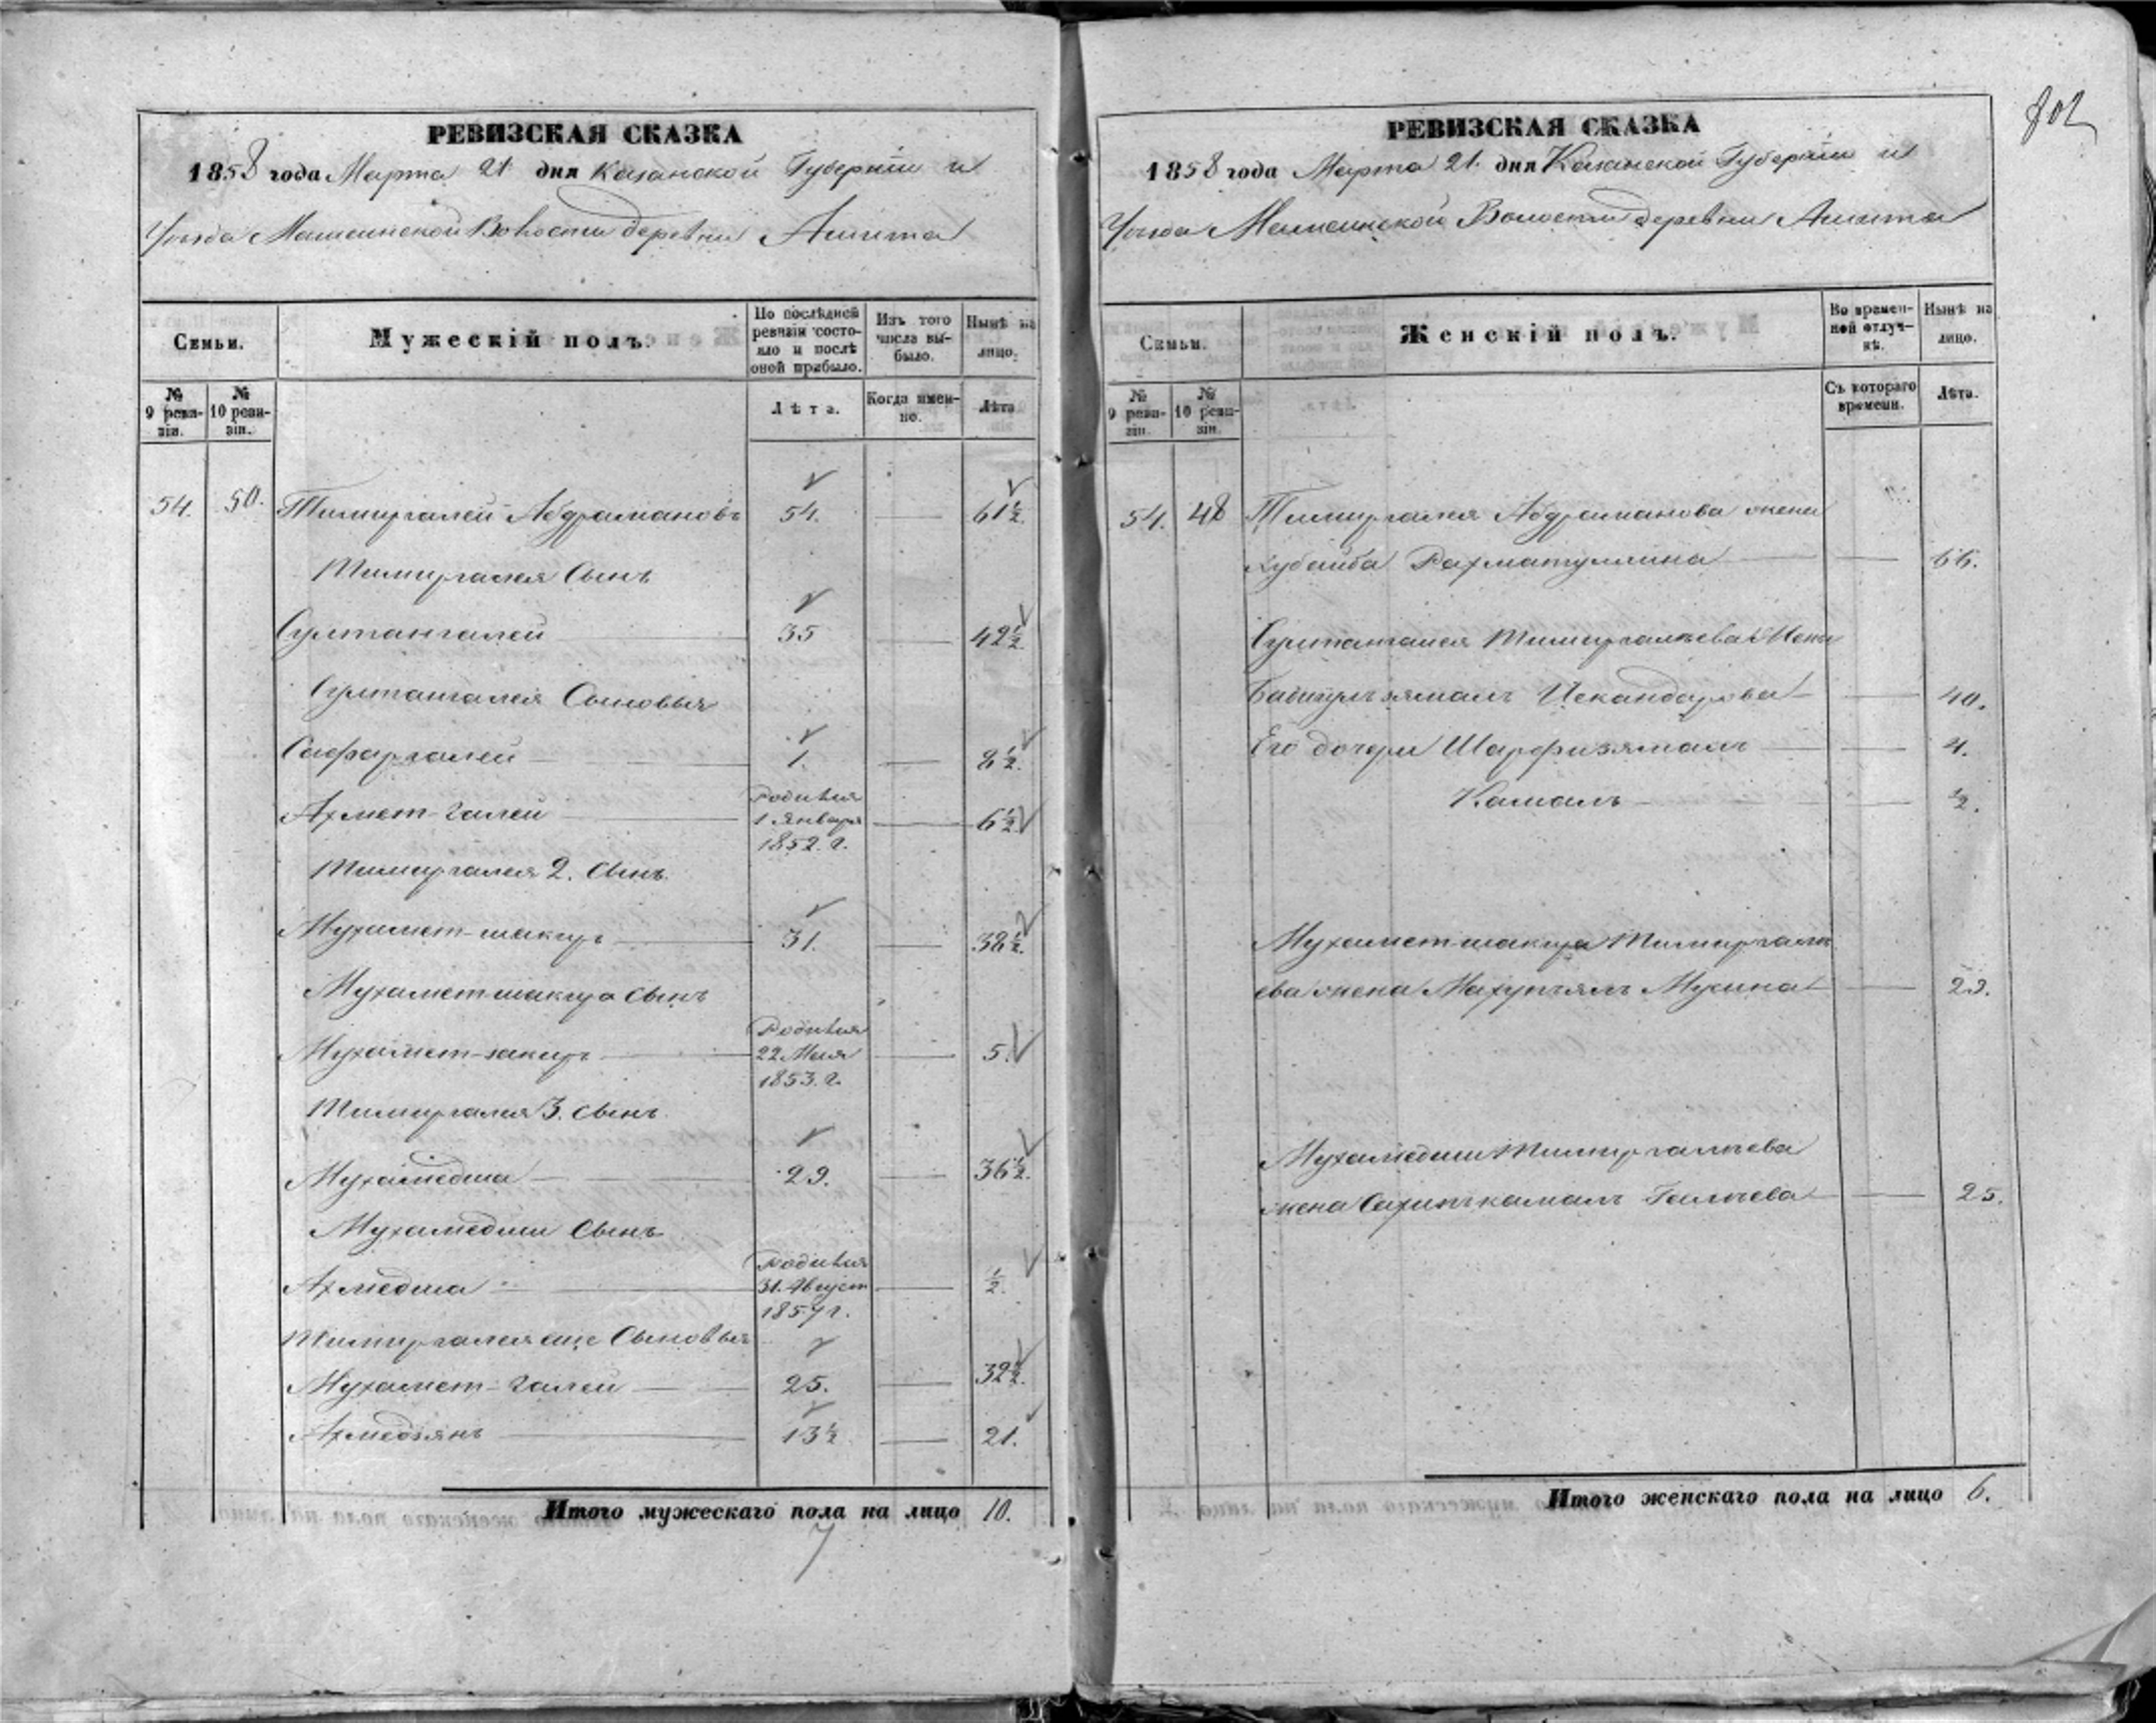 РЕВИЗСКАЯ СКАЗКА
1858 года Марта 21 дня Казанской Губерніи и
Уезда Мамсинской Волости деревни Ашита
Семьи.
Мужескій полъ.
По послѣдней ревизіи состояло и послѣ оной прибыло.
Изъ того числа выбыло.
Нынѣ на лицо.
№ 9 ревизіи.
№ 10 ревизіи.
Лѣта.
Когда именно.
Лѣта
54. 50. Тимиргалей Абдрамановъ 54. 61½.
Тимиргалея Сынъ
Султангалей 35 42½.
Султангалея Сыновья
Сафаргалей 1. 8½.
Ахмет-галей Родился 1 Января 1852. г. 6½.
Тимиргалея 2. Сынъ
Мухамет-шакиръ 31. 38½.
Мухаметшакира Сынъ
Мухамет-закиръ Родился 22 Мая 1853. г. 5.
Тимиргалея 3. Сынъ
Мухамедша 29. 36½.
Мухамедши Сынъ
Ахмедша Родился 31. Август 1857 г. ½.
Тимиргалея еще Сыновья
Мухамет-галей 25. 32½.
Ахмедзянъ 13½ 21.
Итого мужескаго пола на лицо 10.
7
802
РЕВИЗСКАЯ СКАЗКА
1858 года Марта 21. дня Казанской Губерніи и
Уезда Мамсинской Волости деревни Ашита
Семьи.
Женскій полъ.
Во временной отлучкѣ.
Нынѣ на лицо.
№ 9 ревизіи.
№ 10 ревизіи.
Съ котораго времени.
Лѣта.
54. 48 Тимиргалея Абдраманова жена
Хубайба Рахматуллина 66.
Султангалея Тимиргалѣева Жена
Искандарова 40.
Его дочери Шарфизямалъ 4.
Камалъ ½.
Мухаметшакира Тимиргалѣ
ева жена Мусина 29.
Мухамедши Тимиргалѣева
жена Галѣева 25.
Итого женскаго пола на лицо 6.